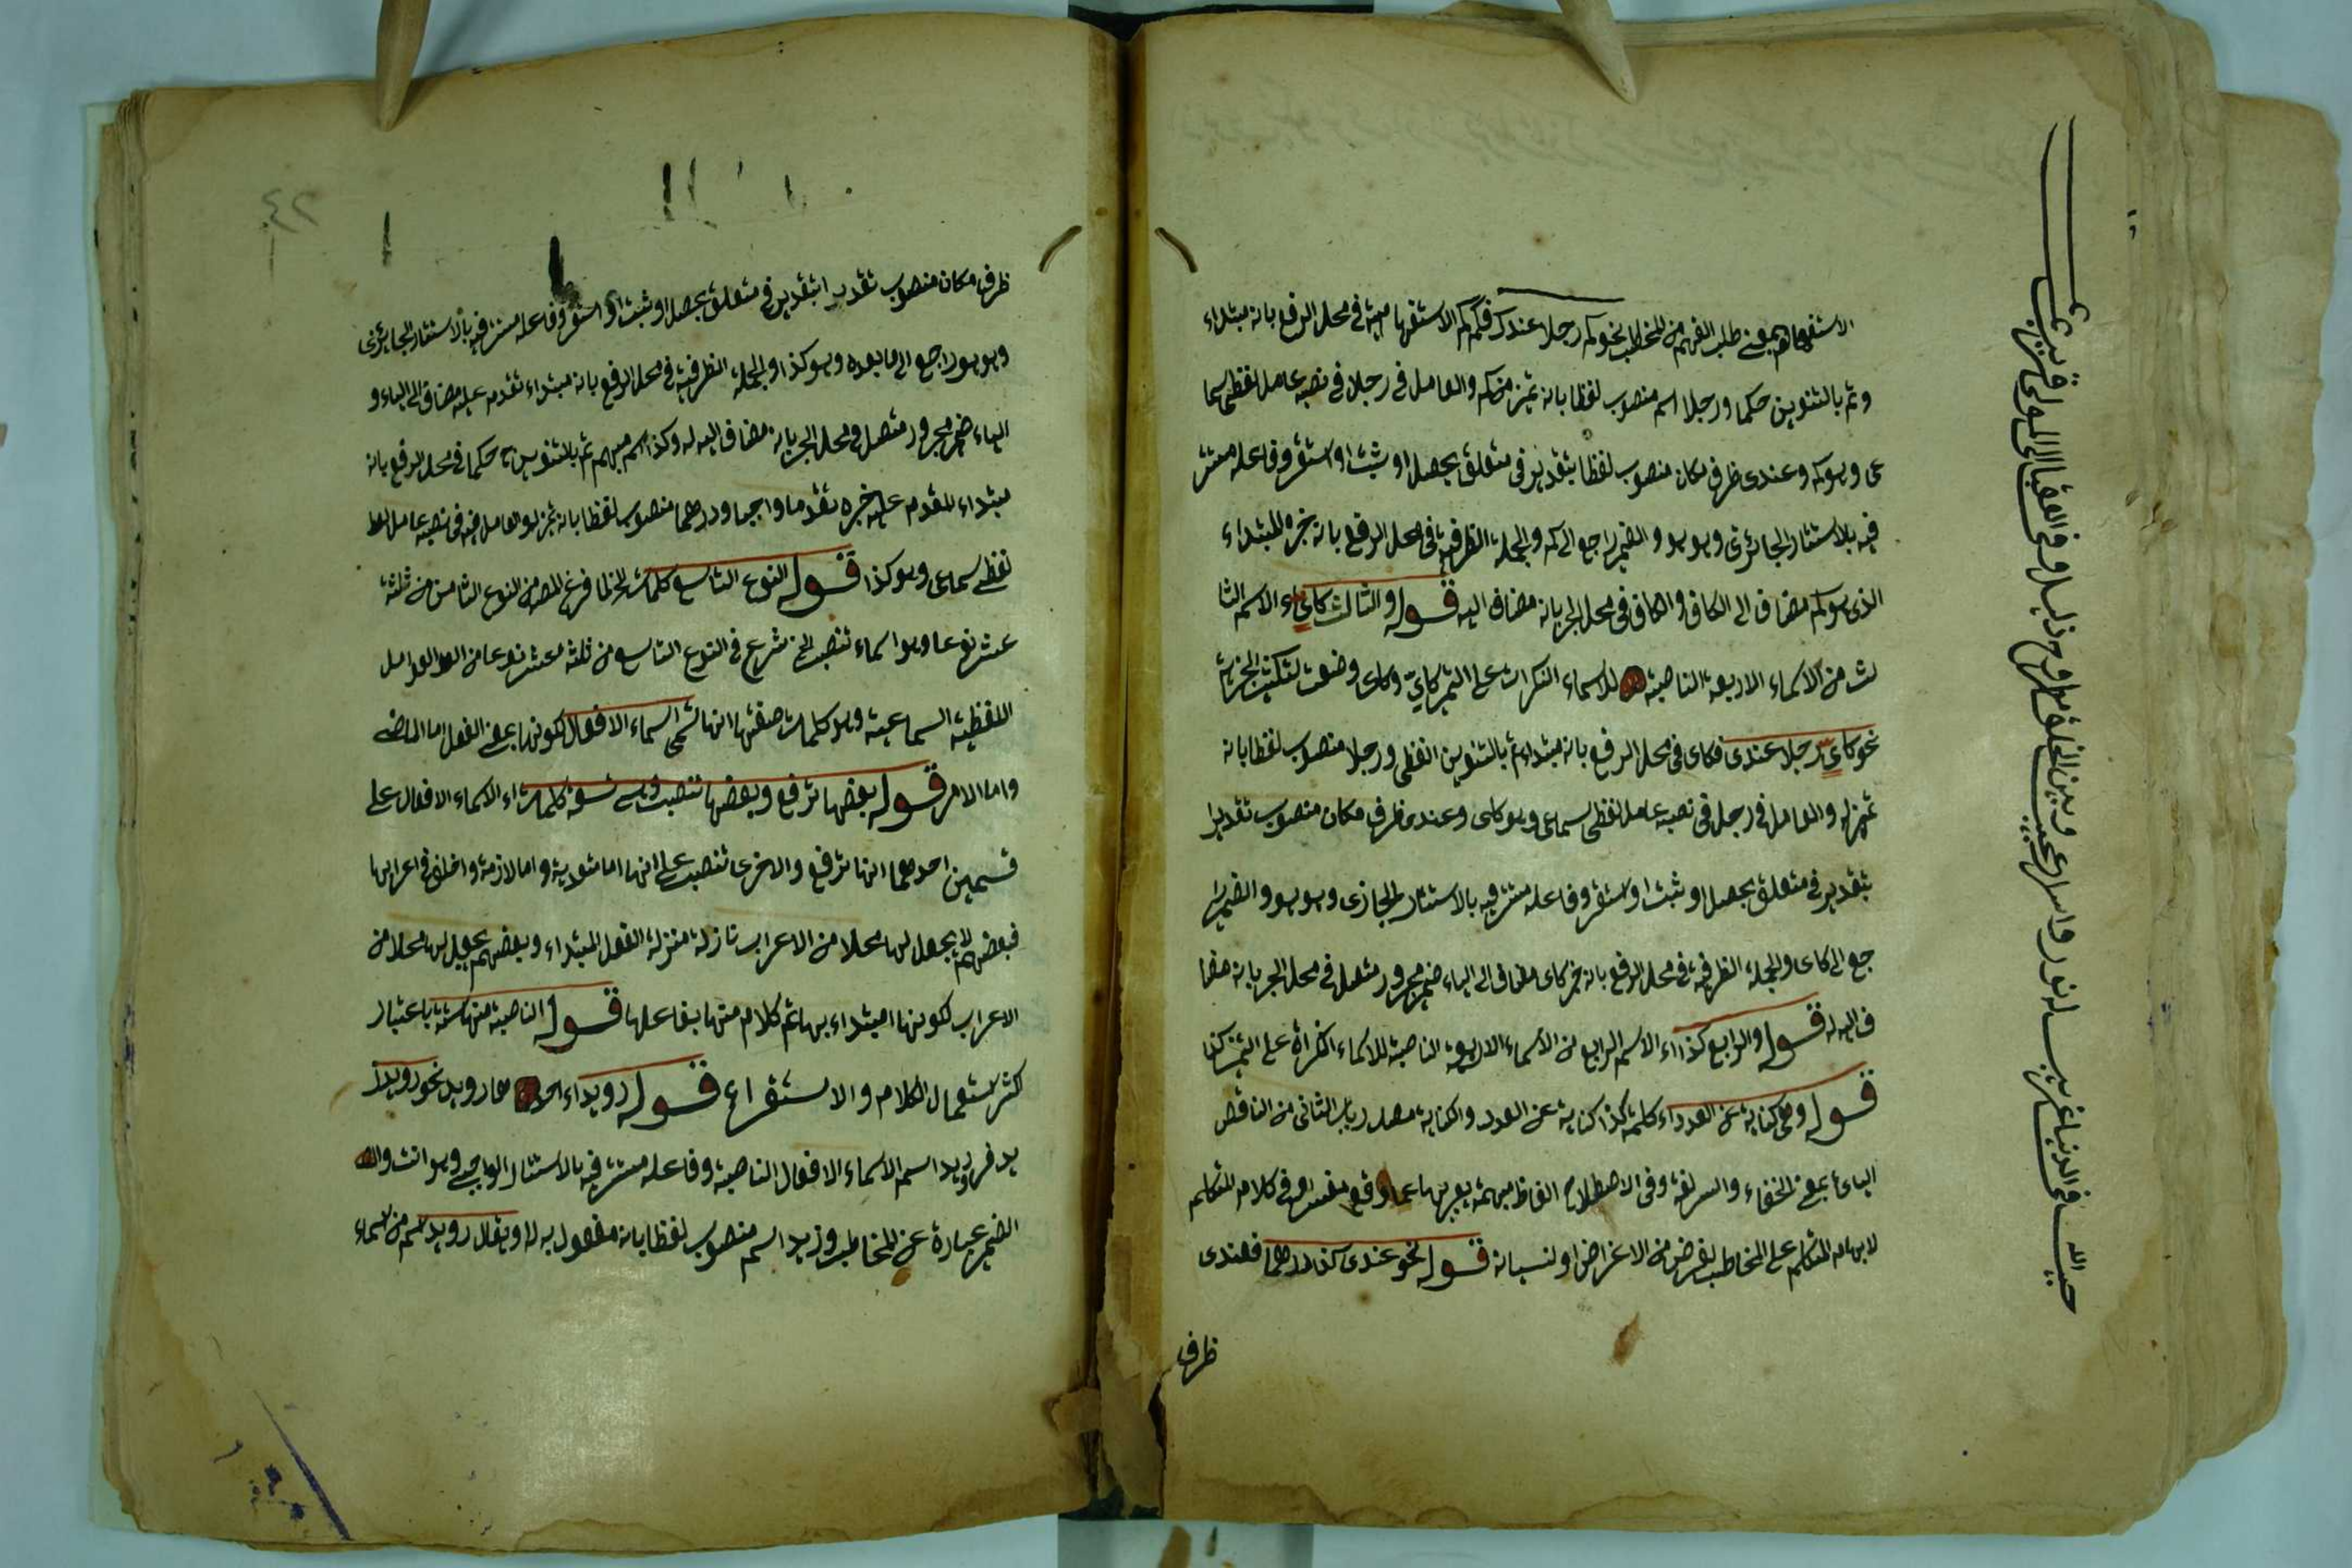 الاستفهام بمعنى طلب الفهم من المخاطب نحو كم رجلا عندك فكم كم الاستفها مية في محل الرفع بانه مبتداء
وتم بالتنوين حكما ورجلا اسم منصوب لفظا بانه تميز من كم والعامل في رجلا في نصبه عامل لفظى سما
عى وهو كم وعندى ظرف مكان منصوب لفظا بتقدير فى متعلق بحصل او يثبت او استقر وفاعله مستتر
فيه بالاستتار الجائزى وهو هو والضمير راجع الى كم والجملة الظرفية فى محل الرفع بانه خبره المبتداء
الذى هو كم مضاف الى الكاف والكاف فى محل الجر بانه مضاف اليه قوله والثالث كاى اء الاسم الثا
لث من الاسماء الاربعة الناصبة للاسماء النكرات على التميز كاىّ وكاى وضعت لتكثير الخبرية
نحو كاى رجلا عندى فكاى فى محل الرفع بانه مبتداء تم بالتنوين لفظى ورجلا منصوب لفظا بانه
تميز له والعامل فى رجل فى نصبه عامل لفظى سماعى وهو كاى وعندى ظرف مكان منصوب تقديرا
بتقدير فى متعلق بحصل او ثبت او استقر وفاعله مستتر فيه بالاستتار الجازى وهو هو والضمير را
جع الى كاى والجملة الظرفية فى محل الرفع بانه خبر كاى مضاف الى الياء ضمير مجرور متصل فى محل الجر بانه مضا
ف اليه له قوله والرابع كذا اء الاسم الرابع من الاسماء الاربعة الناصبة للاسماء النكراة على التميز كذا
قوله وهى كناية عن العدد اء كلمة كذا كناية عن العدد والكناية مصدر باب الثانى من الناقص
اليائى بمعنى الخفاء والسر لغة وفى الاصطلاح الفاظ مبهمة يعبر بها عما وقع مفسرا فى كلام المتكلم
لابهام المتكلم على المخاطب لغرض من الاغراض او لنسيانه قوله نحو عندى كذا درهما فعندى
ظرف
ظرف مكان منصوب تقديرا بتقدير فى متعلق بحصل او ثبت او استقر وفاعله مستتر فيه بالاستتار الجائزى
وهو هو راجع الى ما بعده وهو كذا والجملة الظرفية فى محل الرفع بانه مبتداء تقدم عليه مضاف الى الياء و
الياء ضمير مجرور متصل فى محل الجر بانه مضاف اليه له وكذا اسم مبهم تم بالتنوين حكما فى محل الرفع بانه
مبتداء المقدم عليه خبره تقدما واجبا ودرهما منصوب لفظا بانه تميز له والعامل فيه فى نصبه عامل
لفظى سماعى وهو كذا قوله النوع التاسع كلمات الخ لما فرغ المص من النوع الثامن من ثلثة
عشر نوعا وهو اسماء تنصب الخ شرع فى النوع التاسع من ثلثة عشر نوعا من العوامل
اللفظية السماعية وهو كلمات صفتها انها تسمى اسماء الافعال لكونها بمعنى الفعل اما الماضى
واما الامر قوله بعضها ترفع وبعضها تنصب وهى تسعة كلمات اء الاسماء الافعال على
قسمين احدهما انها ترفع والاخرى تنصب على انها اما متعدية واما لازمة واختلف فى اعرابها
فبعضهم لا يجعل لها محلا من الاعراب نازلة منزلة الفعل المبتداء وبعضهم يجعل لها محلا من
الاعراب لكونها مبتداء بها تم كلام منها بفاعلها قوله الناصبة منها ستة باعتبار
كثر استعمال الكلام والاستقراء قوله رويد اء احدها رويد نحو رويد ز
يد فرويد اسم الاسماء الافعال الناصبة وفاعله مستتر فيه بالاستتار الواجبى وهو انت و
الضمير عبارة عن المخاطب وزيد اسم منصوب لفظا بانه مفعول به له ويقال رويد اسم من اسماء